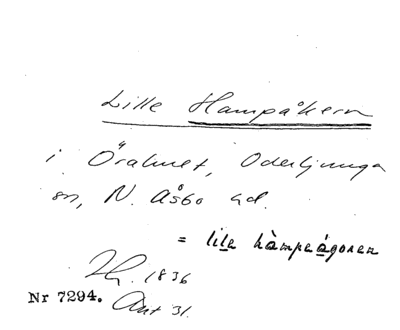 Lille Hampåkern
i Örahult, Oderljunga
sn, N. Åsbo hd.
= lile hàmpeágoren
1836
Nr 7294. Akt 31.